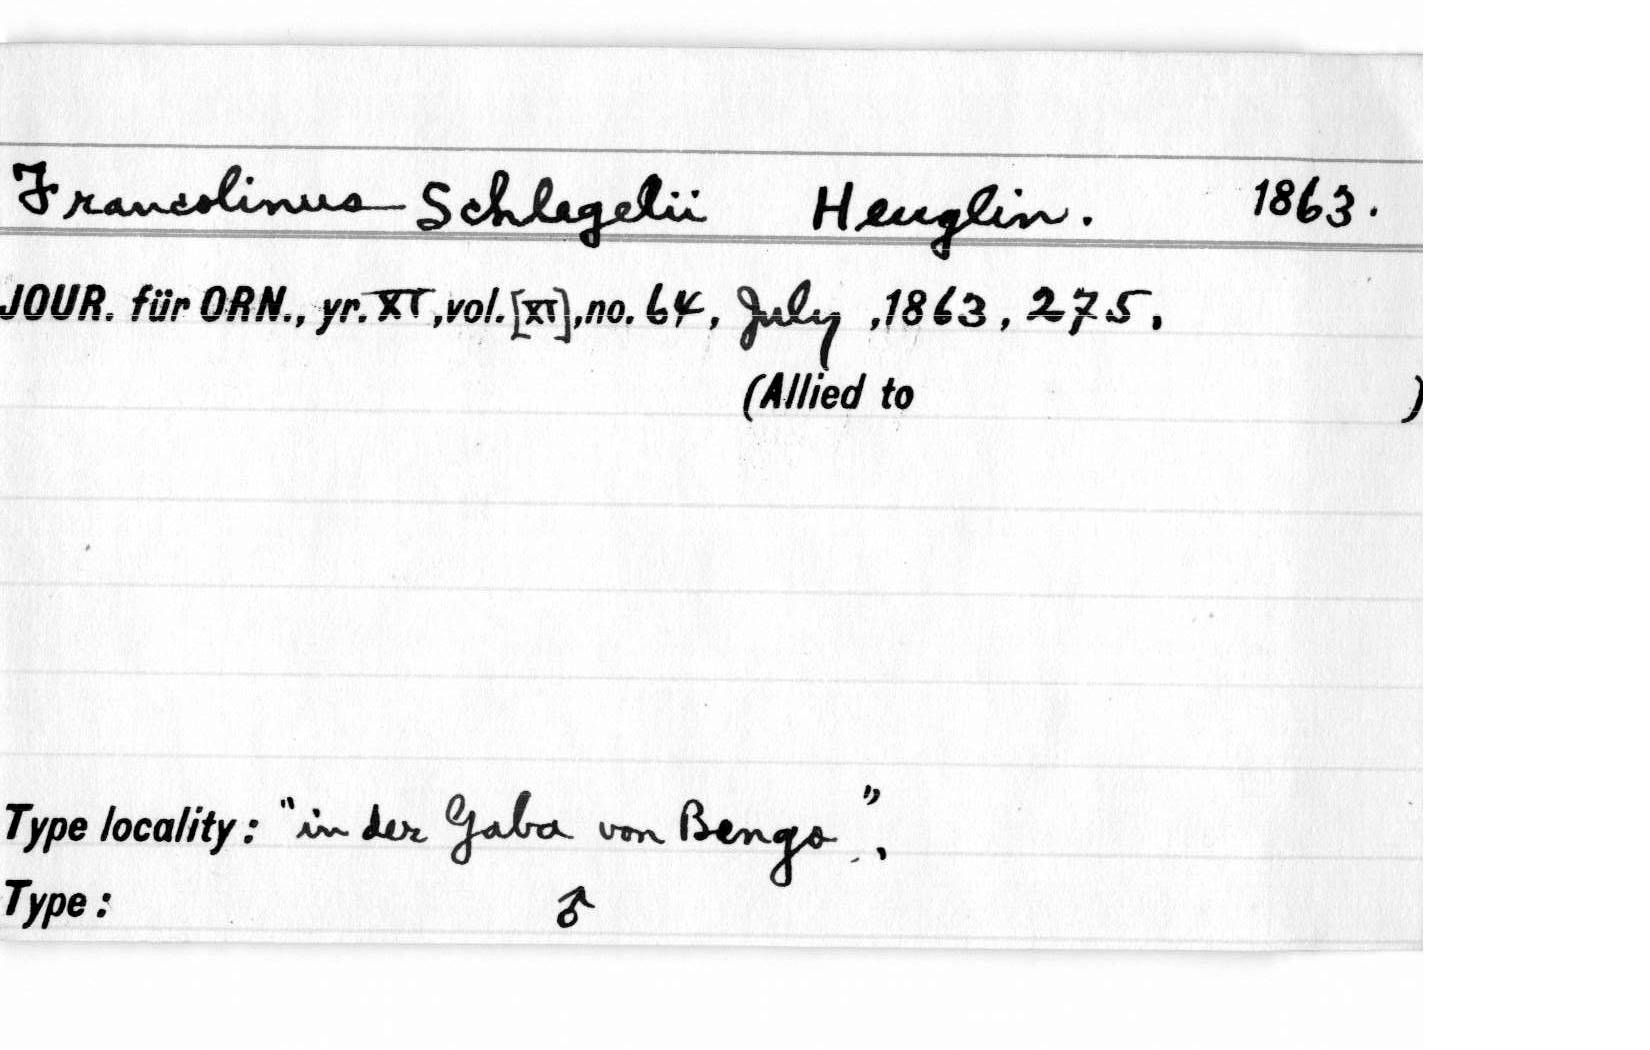 Francolinus Schlegelii Heuglin. 1863.
JOUR. für ORN., yr. XI, vol. [XI], no. 64, July, 1863, 275,
(Allied to )
Type locality: "in der Gaba von Bengo",
Type: ♂